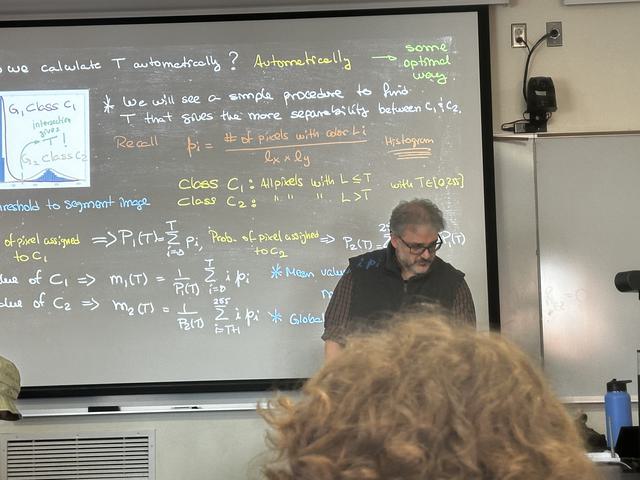 we calculate T automatically? Automatically → some optimal way
G₁ Class C₁
intersection gives T!
G₂ Class C₂
* We will see a simple procedure to find
T that gives the more separability between C₁ & C₂.
Recall pᵢ = # of pixels with color Lᵢ / lₓ × lᵧ Histogram
Class C₁: All pixels with L ≤ T with T∈[0,255]
Class C₂: " " " L > T
threshold to segment image
of pixel assigned to C₁ ⇒ P₁(T) = Σ_{i=0}^{T} pᵢ, Prob. of pixel assigned to C₂ ⇒ P₂(T) =
of C₁ ⇒ m₁(T) = 1/P₁(T) Σ_{i=0}^{T} i pᵢ * Mean
of C₂ ⇒ m₂(T) = 1/P₂(T) Σ_{i=T+1}^{255} i pᵢ * Global